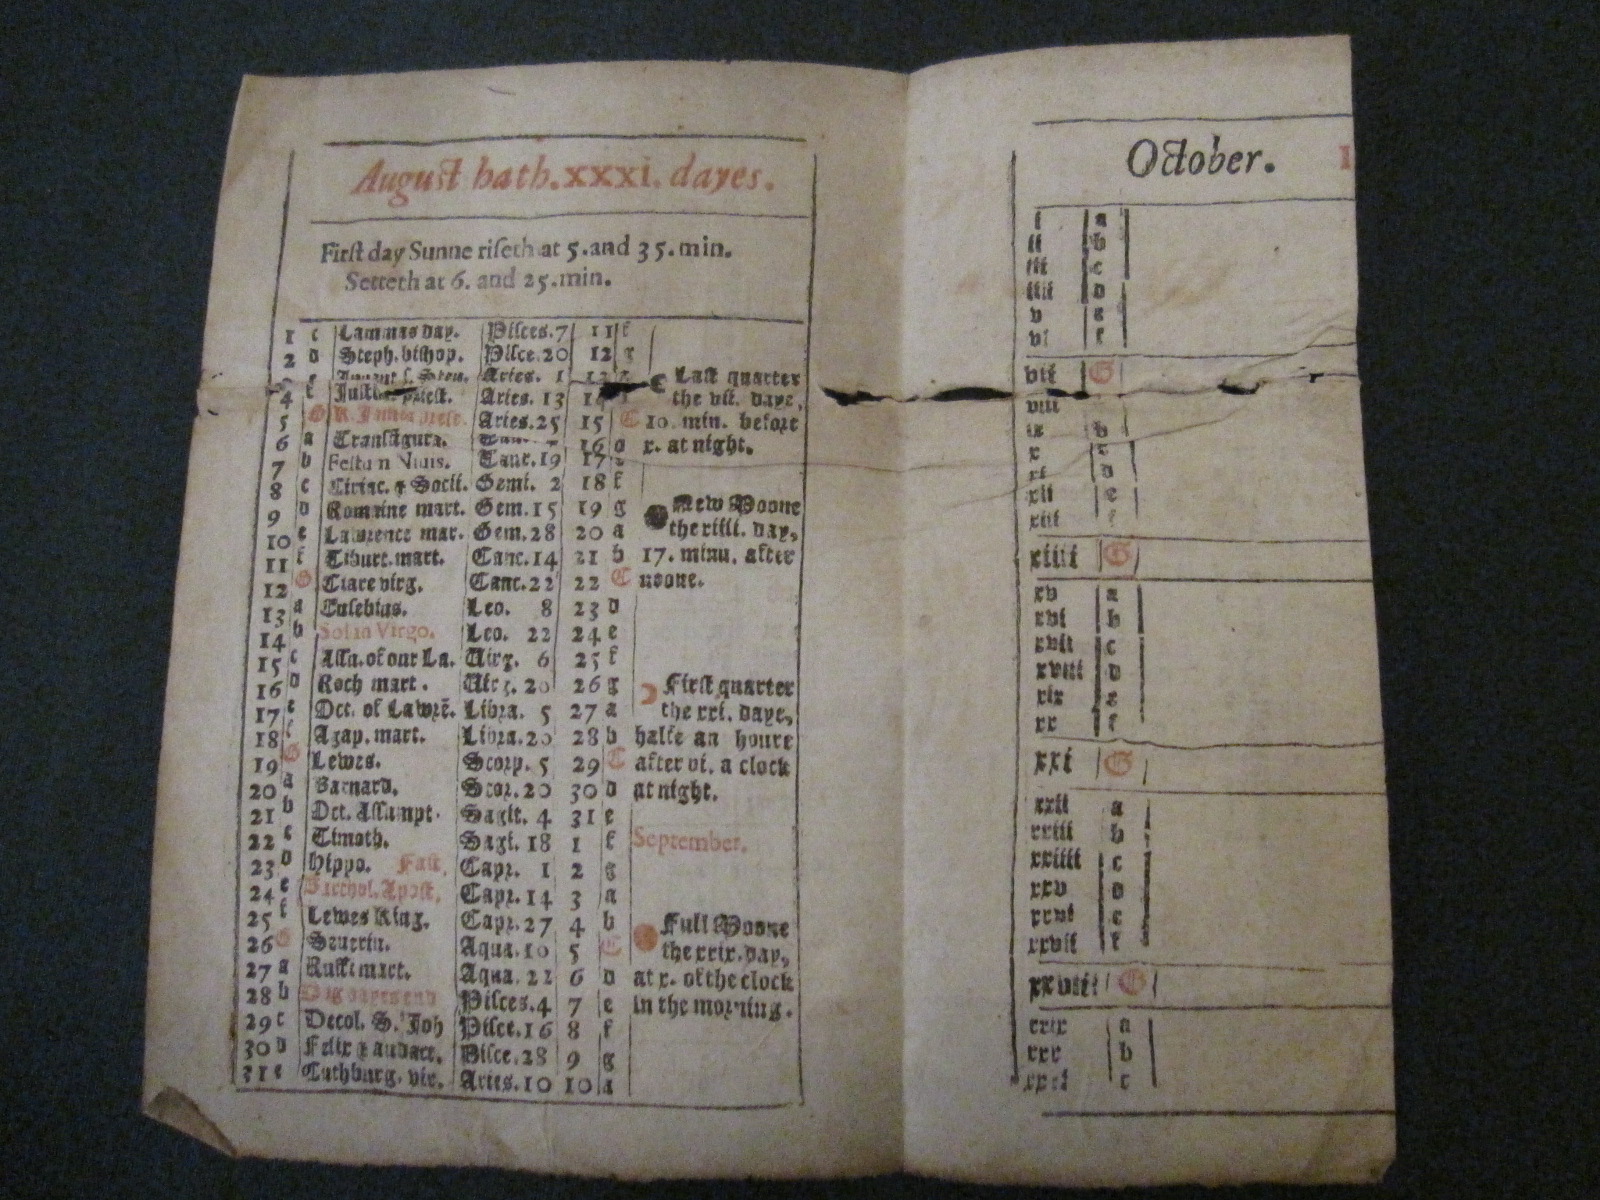 August hath. xxxi. dayes.
First day Sunne riseth at 5. and 35. min.
Setteth at 6. and 25. min.
1 c Lammas day. Pisces. 7 11 f
2 d Steph. bishop. Pisce. 20 12 g
Aries. 1
4 f Aries. 13 14
5 G Aries. 25 15 C
6 a Transfigura. 16 d
7 b Festū Niuis. Taur. 19 17 e
8 c Ciriac. & Socii. Gemi. 2 18 f
9 d Romaine mart. Gem. 15 19 g
10 e Lawrence mar. Gem. 28 20 a
11 f Tiburt. mart. Canc. 14 21 b
12 G Clare virg. Canc. 22 22 C
13 a Eusebius. Leo. 8 23 d
14 b Sol in Virgo. Leo. 22 24 e
15 c Assu. of our La. Virg. 6 25 f
16 d Roch mart. Virg. 20 26 g
17 e Oct. of Lawrē. Libra. 5 27 a
18 f Agap. mart. Libra. 20 28 b
19 G Lewes. Scorp. 5 29 C
20 a Barnard. Scor. 20 30 d
21 b Oct. Assumpt. Sagit. 4 31 e
22 c Timoth. Sagi. 18 1 f
23 d Hippo. Fast. Capr. 1 2 g
24 e Barthol. Apost. Capr. 14 3 a
25 f Lewes King. Capr. 27 4 b
26 G Seuerin. Aqua. 10 5 C
27 a Ruffi mart. Aqua. 22 6 d
28 b Dog dayes end Pisces. 4 7 e
29 c Decol. S. Joh Pisce. 16 8 f
30 d Felix & audact. Pisce. 28 9 g
31 e Cuthburg. vir. Aries. 10 10 a
Last quarter
the vii. daye,
10. min. before
x. at night.
New Moone
the xiiii. day,
17. minu. after
noone.
First quarter
the xxi. daye,
halfe an houre
after vi. a clock
at night.
September.
Full Moone
the xxix. day,
at x. of the clock
in the morning.
October.
i a
ii b
iii c
iiii d
v e
vi f
vii G
viii
ix b
x c
xi d
xii e
xiii f
xiiii G
xv a
xvi b
xvii c
xviii d
xix e
xx f
xxi G
xxii a
xxiii b
xxiiii c
xxv d
xxvi e
xxvii f
xxviii G
xxix a
xxx b
xxxi c